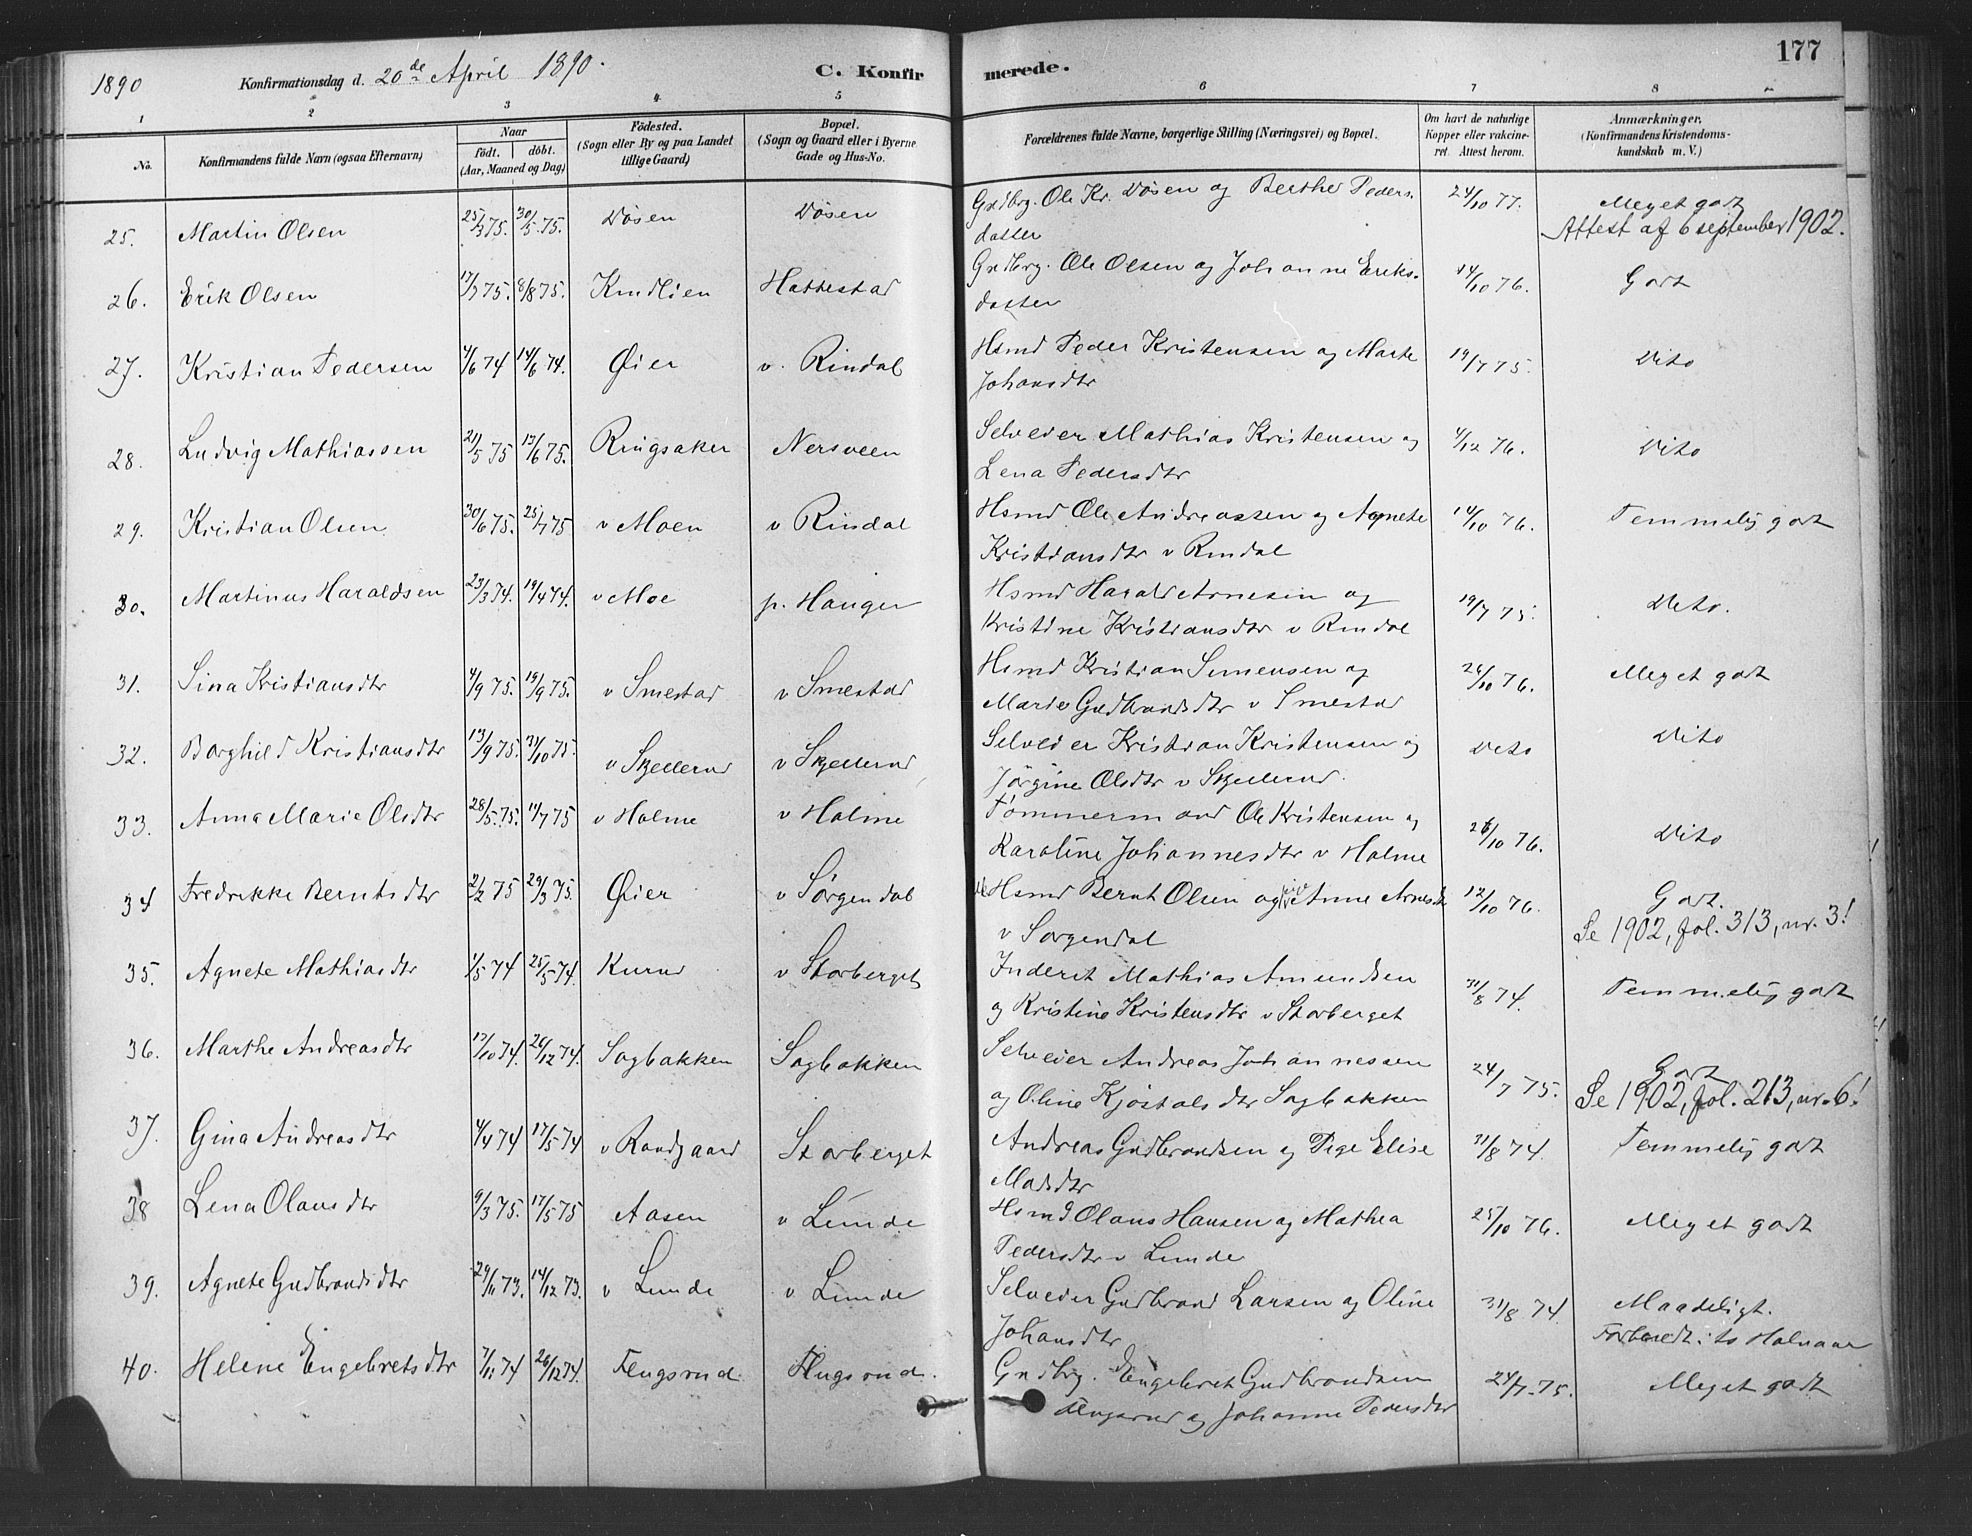 1890 Konfirmationsdag d. 20de April 1890. C. Konfirmerede. 177
1 2 3 4 5 6 7 8
No. Konfirmandens fulde Navn (ogsaa Efternavn) Naar født. døbt. (Aar, Maaned og Dag) Fødested. (Sogn eller By og paa Landet tillige Gaard) Bopæl. (Sogn og Gaard eller i Byerne Gade og Hus-No. Forældrenes fulde Navne, borgerlige Stilling (Næringsvei) og Bopæl. Om havt de naturlige Kopper eller vakcineret. Attest herom. Anmærkninger. (Konfirmandens Kristendomskundskab m. V.)
25. Martin Olsen 25/3 75. 30/5 75. Døsen Døsen Gudbrg. Ole Kr. Døsen og Berthe Peders- 24/10 77. Meget godt
datter Attest af 6 september 1902.
26. Erik Olsen 17/7 75. 8/8 75. Knudlien Hattestad Gudbrg. Ole Olsen og Johanne Eriks- 14/10 76. Godt
datter
27. Kristian Pedersen 4/6 74 14/6 74. Øier v. Rindal Hsmd Peder Kristensen og Marte 19/7 75. Dito
Johansdtr
28. Ludvig Mathiassen 21/5 75 13/6 75. Ringsaker Nersveen Selveier Mathias Kristensen og 4/12 76. Dito
Lena Pedersdtr
29. Kristian Olsen 30/6 75. 25/7 75 v Moen v Rindal Hsmd Ole Andreassen og Agnete 14/10 76. Temmelig godt
Kristiansdtr v Rindal
30. Martinus Haraldsen 23/3 74. 19/4 74. v Moe p. Haugen Hsmd Harald Arnesen og 19/7 75. Dito.
Kristine Kristiansdtr v Rindal
31. Sina Kristiansdtr 4/9 75. 19/9 75. v Smestad v Smestad Hsmd Kristian Simensen og 26/10 76. Meget godt
Marie Gudbrandsdtr v Smestad
32. Borghild Kristiansdtr 13/9 75. 31/10 75. v Skjellerud v Skjellerud Selveier Kristian Kristensen og Dito Dito
Jørgine Olsdtr v Skjellerud.
33. Anna Marie Olsdtr 28/5 75. 11/7 75 v Holme v Holme Tømmermand Ole Kristensen og 26/10 76. Dito
Karoline Johannesdtr v Holme
34 Fredrikke Berntsdtr 2/2 75 29/3 75. Øier v Sørgendal Hsmd Bernt Olsen og Anne Arnesdtr 12/10 76. Godt.
v Sørgendal Se 1902, fol. 313, nr. 3!
35. Agnete Mathiasdtr 1/5 74 25/5 74. Kurud v Storberget Inderst Mathias Amundsen 31/8 74. Temmelig godt
og Kristine Kristensdtr v Storberget
36. Marthe Andreasdtr 17/10 74. 26/12 74. Sagbakken Sagbakken Selveier Andreas Johannessen 24/7 75. Godt
og Oline Kjøstalsdtr Sagbakken Se 1902, fol. 213, nr. 6!
37. Gina Andreasdtr 4/4 74 17/5 74 v Randgaard Storberget Andreas Gudbrandsen og Pige Elise 31/8 74. Temmelig godt
Madsdtr
38 Lena Olausdtr 9/3 75. 17/5 75 Aasen v Lunde Hsmd Olaus Hansen og Mathea 25/10 76. Meget godt
Pedersdtr v Lunde
39. Agnete Gudbrandsdtr 29/11 73. 14/12 73. v Lunde v Lunde Selveier Gudbrand Larsen og Oline 31/8 74. Maadeligt.
Johansdtr Forberedt: to Halvaar
40. Helene Engebretsdtr 7/11 74 26/12 74. Flugsrud Flugsrud. Gudbrg. Engebret Gudbrandsen 24/7 75. Meget godt
Flugsrud og Johanne Pedersdtr